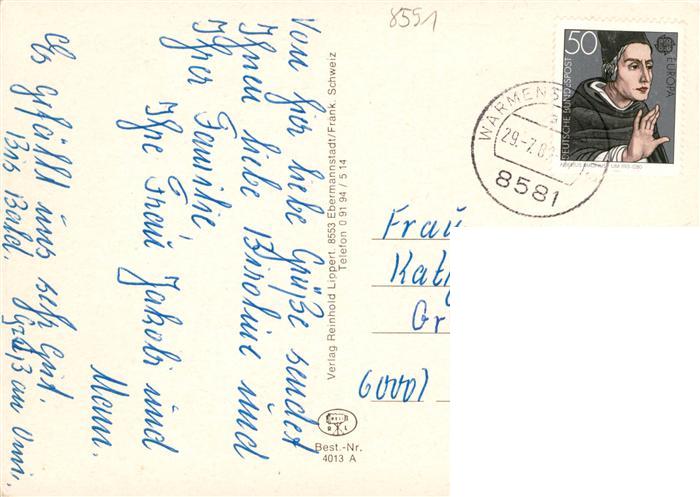 8591
Von hier liebe Grüße sendet
Ihnen liebe Biroline und
Ihrer Familie,
Ihre Frau Jakobi und
Mann.
Es gefällt uns sehr gut.
Bis Bald. Gruß an Omi.
Verlag Reinhold Lippert, 8553 Ebermannstadt/Fränk. Schweiz
Telefon 0 91 94 / 5 14
Best.-Nr.
4013 A
50
DEUTSCHE BUNDESPOST
EUROPA
WARMENS
29.-7.8
8581
Frau
Kat
Gr
6000